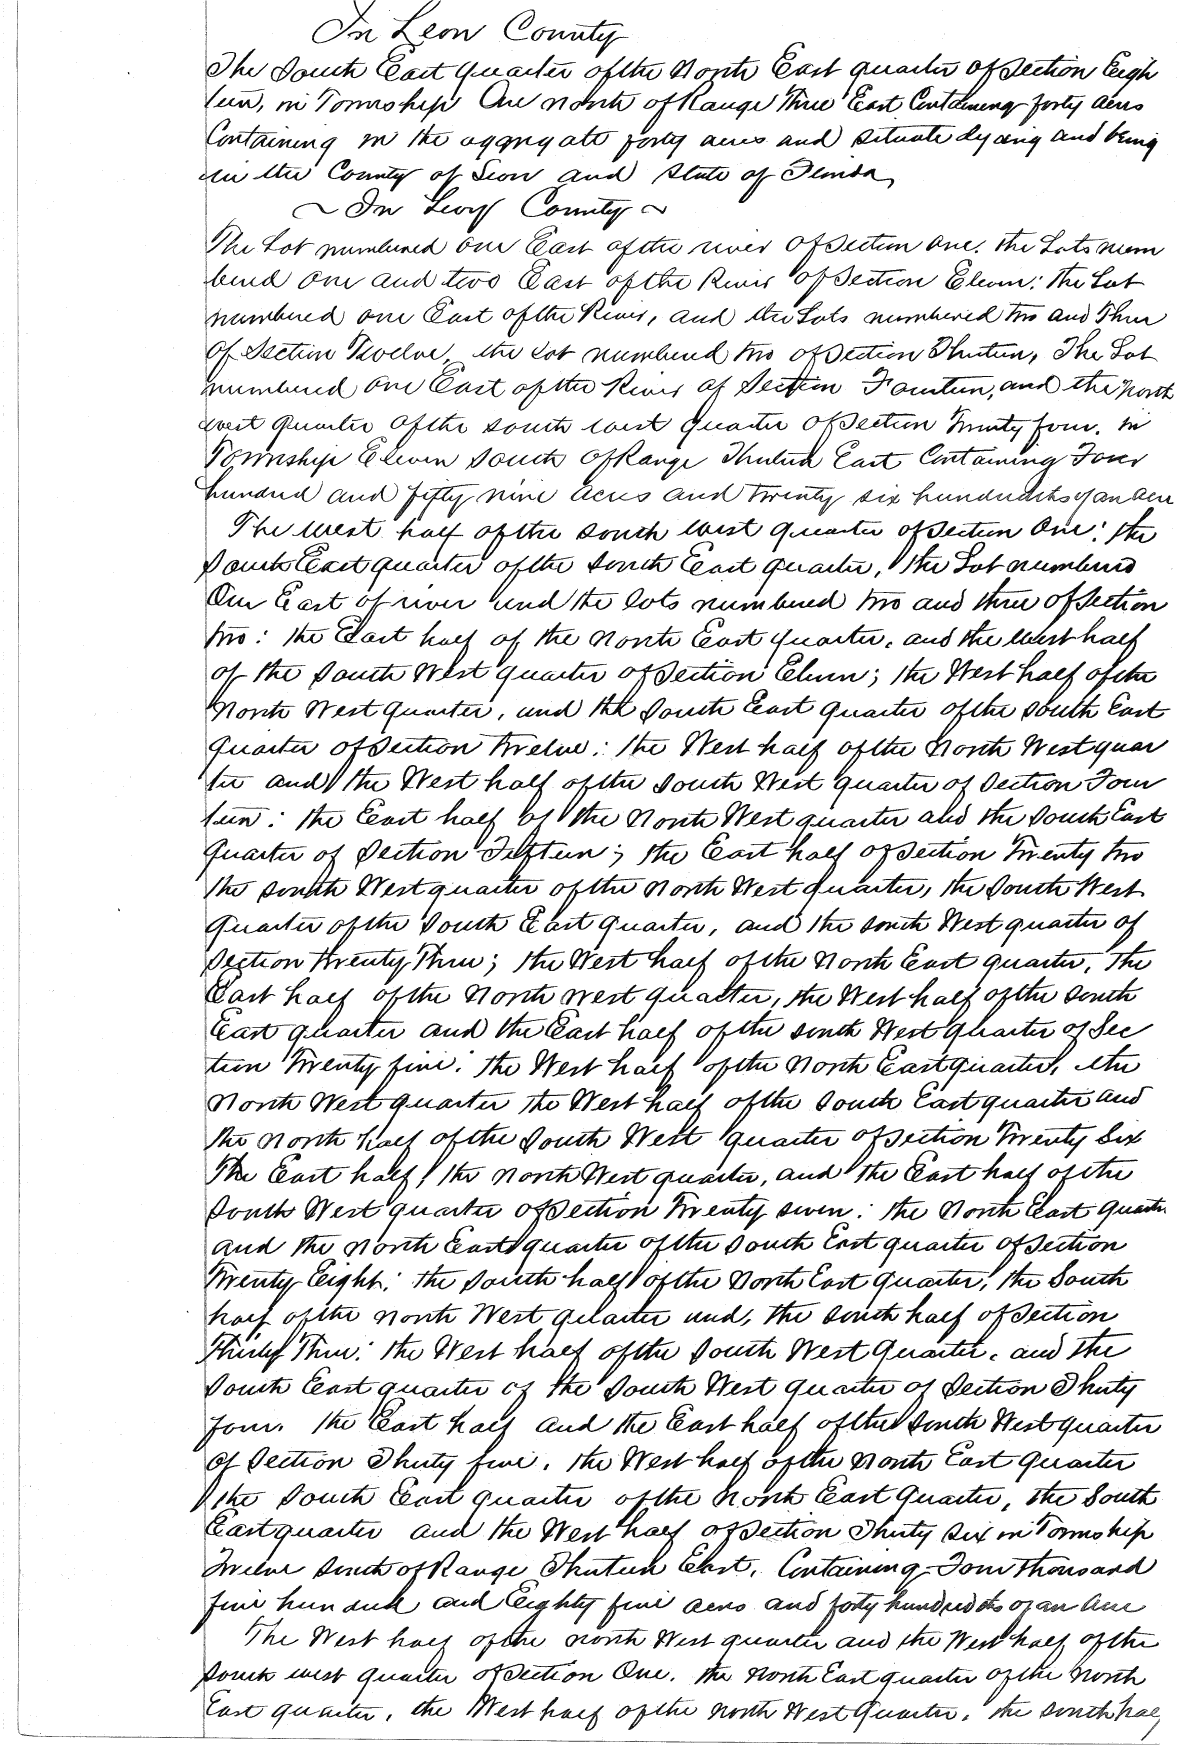 In Leon County
The South East quarter of the North East quarter of Section Eigh
teen, in Township One north of Range Three East Containing forty acres
Containing in the aggregate forty acres and situate lying and being
in the County of Leon and State of Florida,
~ In Levy County ~
The Lot numbered one East of the river of Section One. the Lots num
bered one and two East of the River of Section Eleven: the Lot
numbered one East of the River, and the Lots numbered two and Three
of Section Twelve, the Lot numbered two of Section Thirteen, The Lot
numbered one East of the River of Section Fourteen, and the North
west quarter of the south west quarter of Section Twenty four. in
Township Eleven South of Range Thirteen East Containing Four
hundred and fifty nine acres and twenty six hundredths of an acre
The West half of the south west quarter of Section One: the
South East quarter of the South East quarter, the Lot numbered
One East of river and the lots numbered two and three of Section
two: the East half of the North East quarter. and the West half
of the South West quarter of Section Eleven; the West half of the
North West quarter, and the South East quarter of the south East
quarter of Section twelve: the West half of the North West quar
ter and the West half of the South West quarter of Section Four
teen: the East half of the North West quarter and the South East
quarter of Section Fifteen; the East half of Section Twenty two
the south West quarter of the North West quarter, the South West
quarter of the South East quarter, and the south West quarter of
Section twenty Three; the West half of the North East quarter, the
East half of the North west quarter, the West half of the South
East quarter and the East half of the south West quarter of Sec
tion Twenty five: the West half of the North East quarter, the
North West quarter the West half of the South East quarter and
the North half of the South West quarter of Section Twenty Six
The East half, the North West quarter, and the East half of the
South West quarter of Section Twenty seven: the North East quarter
and the North East quarter of the South East quarter of Section
Twenty Eight: the South half of the North East quarter, the South
half of the North West quarter and, the south half of Section
Thirty Three: the West half of the South West quarter. and the
South East quarter of the South West quarter of Section Thirty
four. the East half and the East half of the South West quarter
of Section Thirty five. the West half of the North East quarter
the South East quarter of the North East quarter, the South
East quarter and the West half of Section Thirty Six in Township
Twelve South of Range Thirteen East. Containing Four thousand
five hundred and Eighty five acres and forty hundredths of an Acre
The West half of the north West quarter and the West half of the
South west quarter of Section One. the North East quarter of the North
East quarter, the West half of the north West quarter. the south half